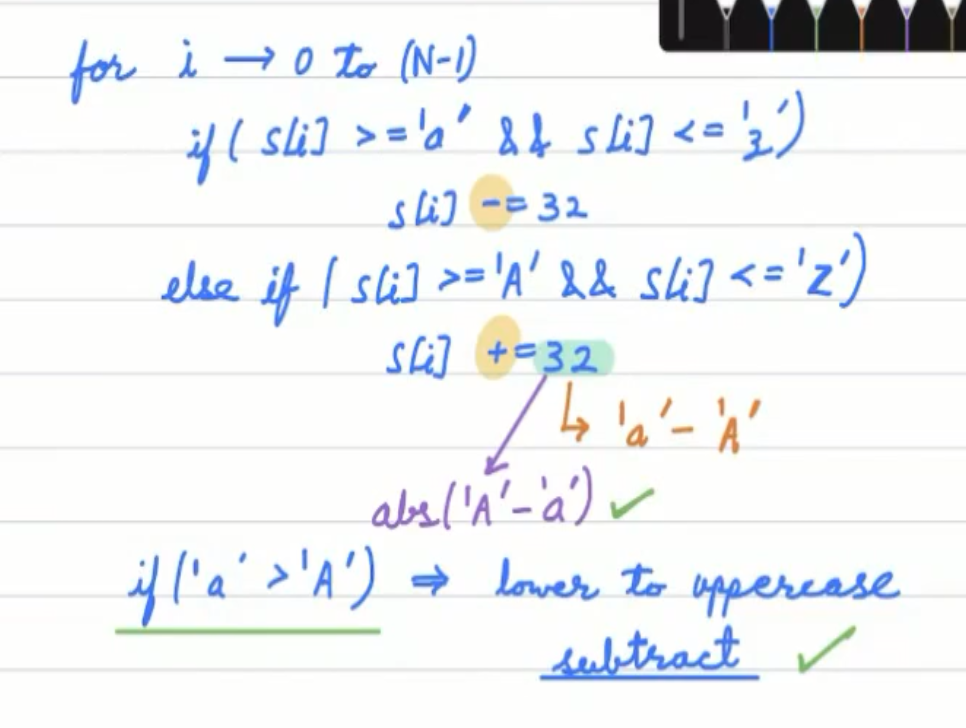 for i → 0 to (N-1)
if( s[i] >='a' && s[i] <= 'z')
s[i] -= 32
else if ( s[i] >='A' && s[i] <= 'Z')
s[i] += 32
↳ 'a' - 'A'
abs('A'-'a') ✓
if('a' > 'A') ⇒ lower to uppercase
subtract ✓